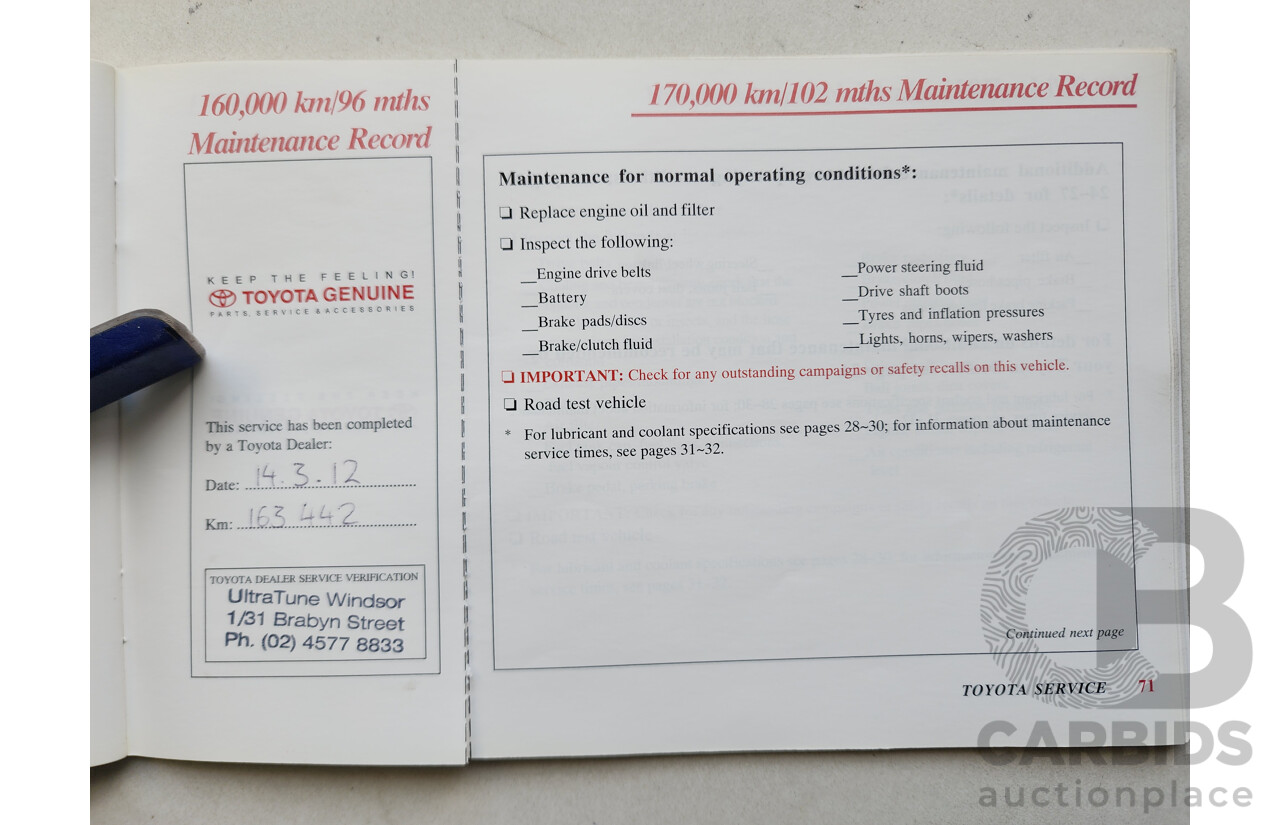 160,000 km/96 mths
Maintenance Record
KEEP THE FEELING!
TOYOTA GENUINE
PARTS, SERVICE & ACCESSORIES
This service has been completed
by a Toyota Dealer:
Date: 14.3.12
Km: 163 442
TOYOTA DEALER SERVICE VERIFICATION
UltraTune Windsor
1/31 Brabyn Street
Ph. (02) 4577 8833
170,000 km/102 mths Maintenance Record
Maintenance for normal operating conditions*:
❏ Replace engine oil and filter
❏ Inspect the following:
__Engine drive belts
__Battery
__Brake pads/discs
__Brake/clutch fluid
__Power steering fluid
__Drive shaft boots
__Tyres and inflation pressures
__Lights, horns, wipers, washers
❏ IMPORTANT: Check for any outstanding campaigns or safety recalls on this vehicle.
❏ Road test vehicle
* For lubricant and coolant specifications see pages 28~30; for information about maintenance
service times, see pages 31~32.
Continued next page
TOYOTA SERVICE 71
CARBIDS
auctionplace